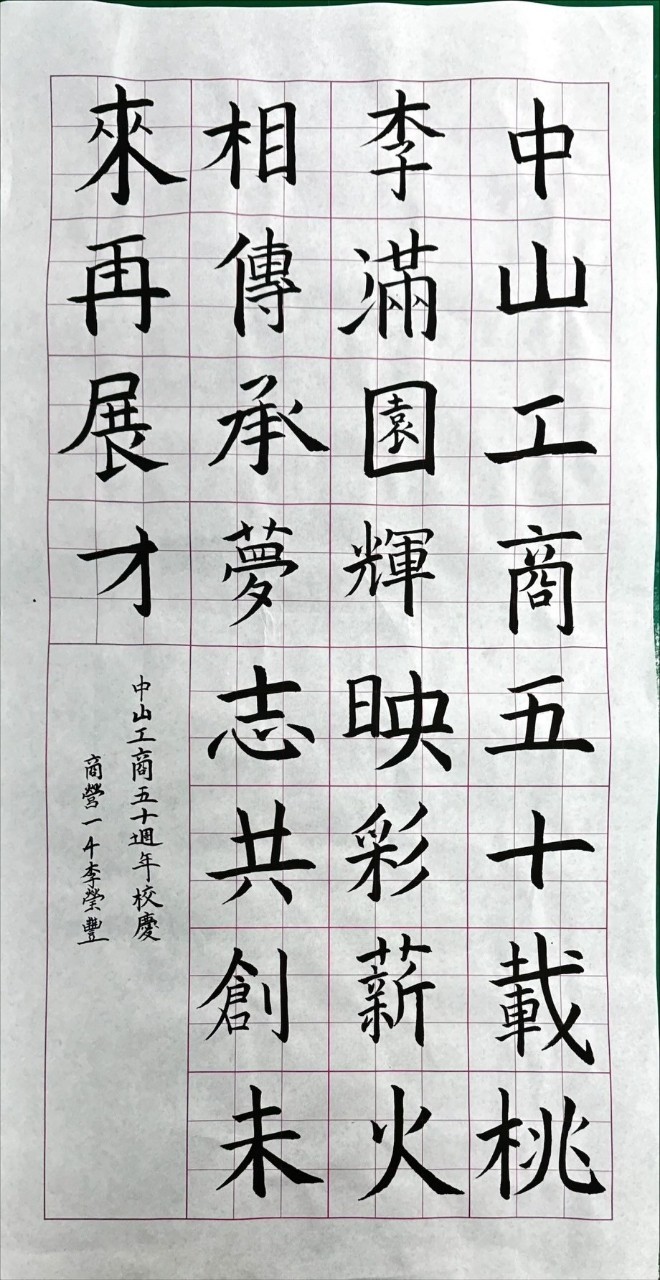 中山工商五十載桃
李滿園輝映彩薪火
相傳承夢志共創未
來再展才
中山工商五十週年校慶
商營一4李榮豐